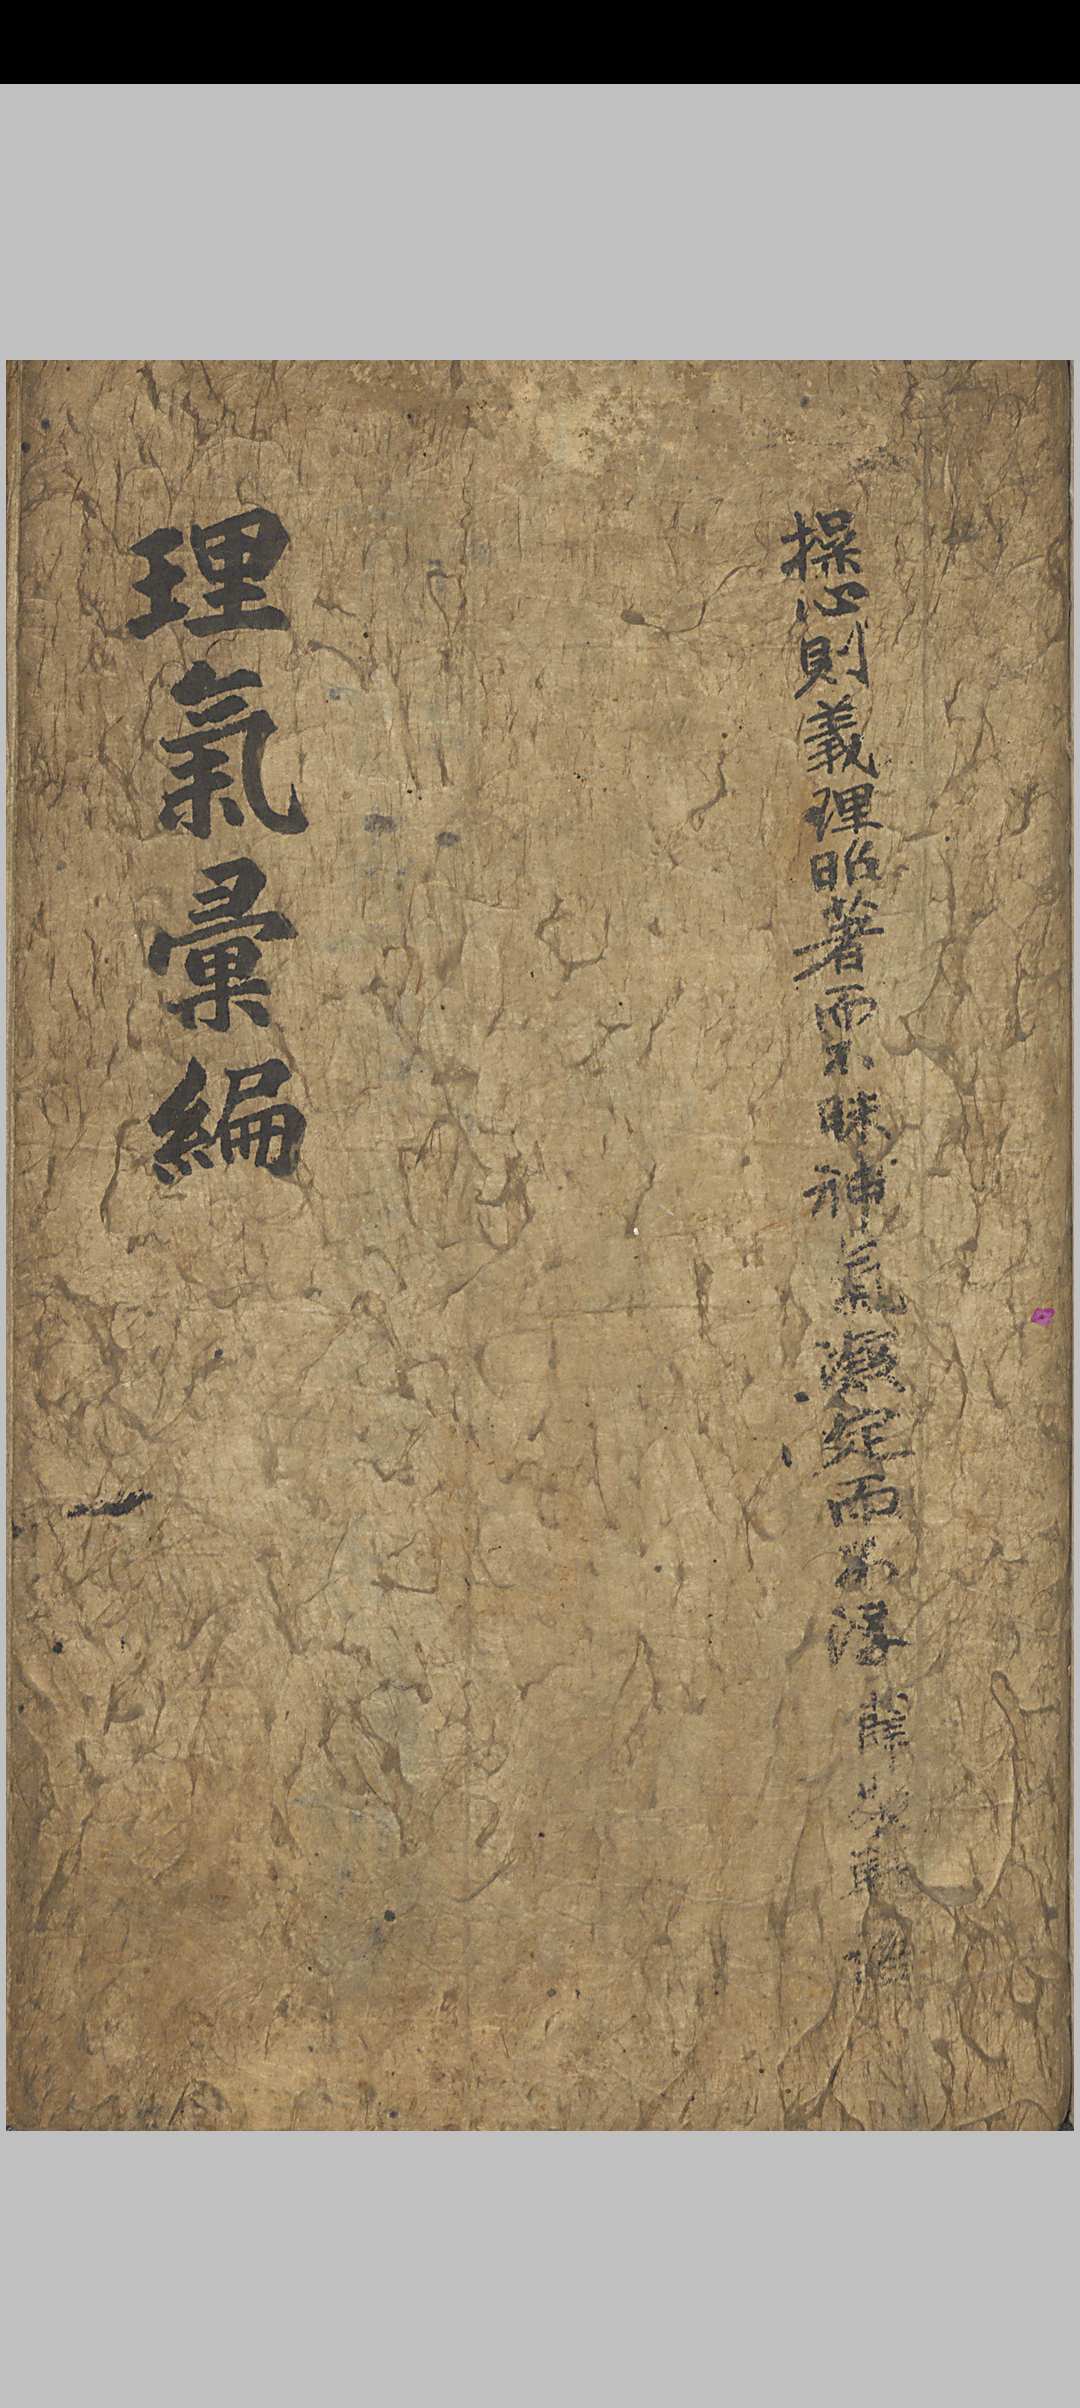 操心則義理昭著而不昧神氣凝定而不浮 薛敬軒語
理氣彙編
一